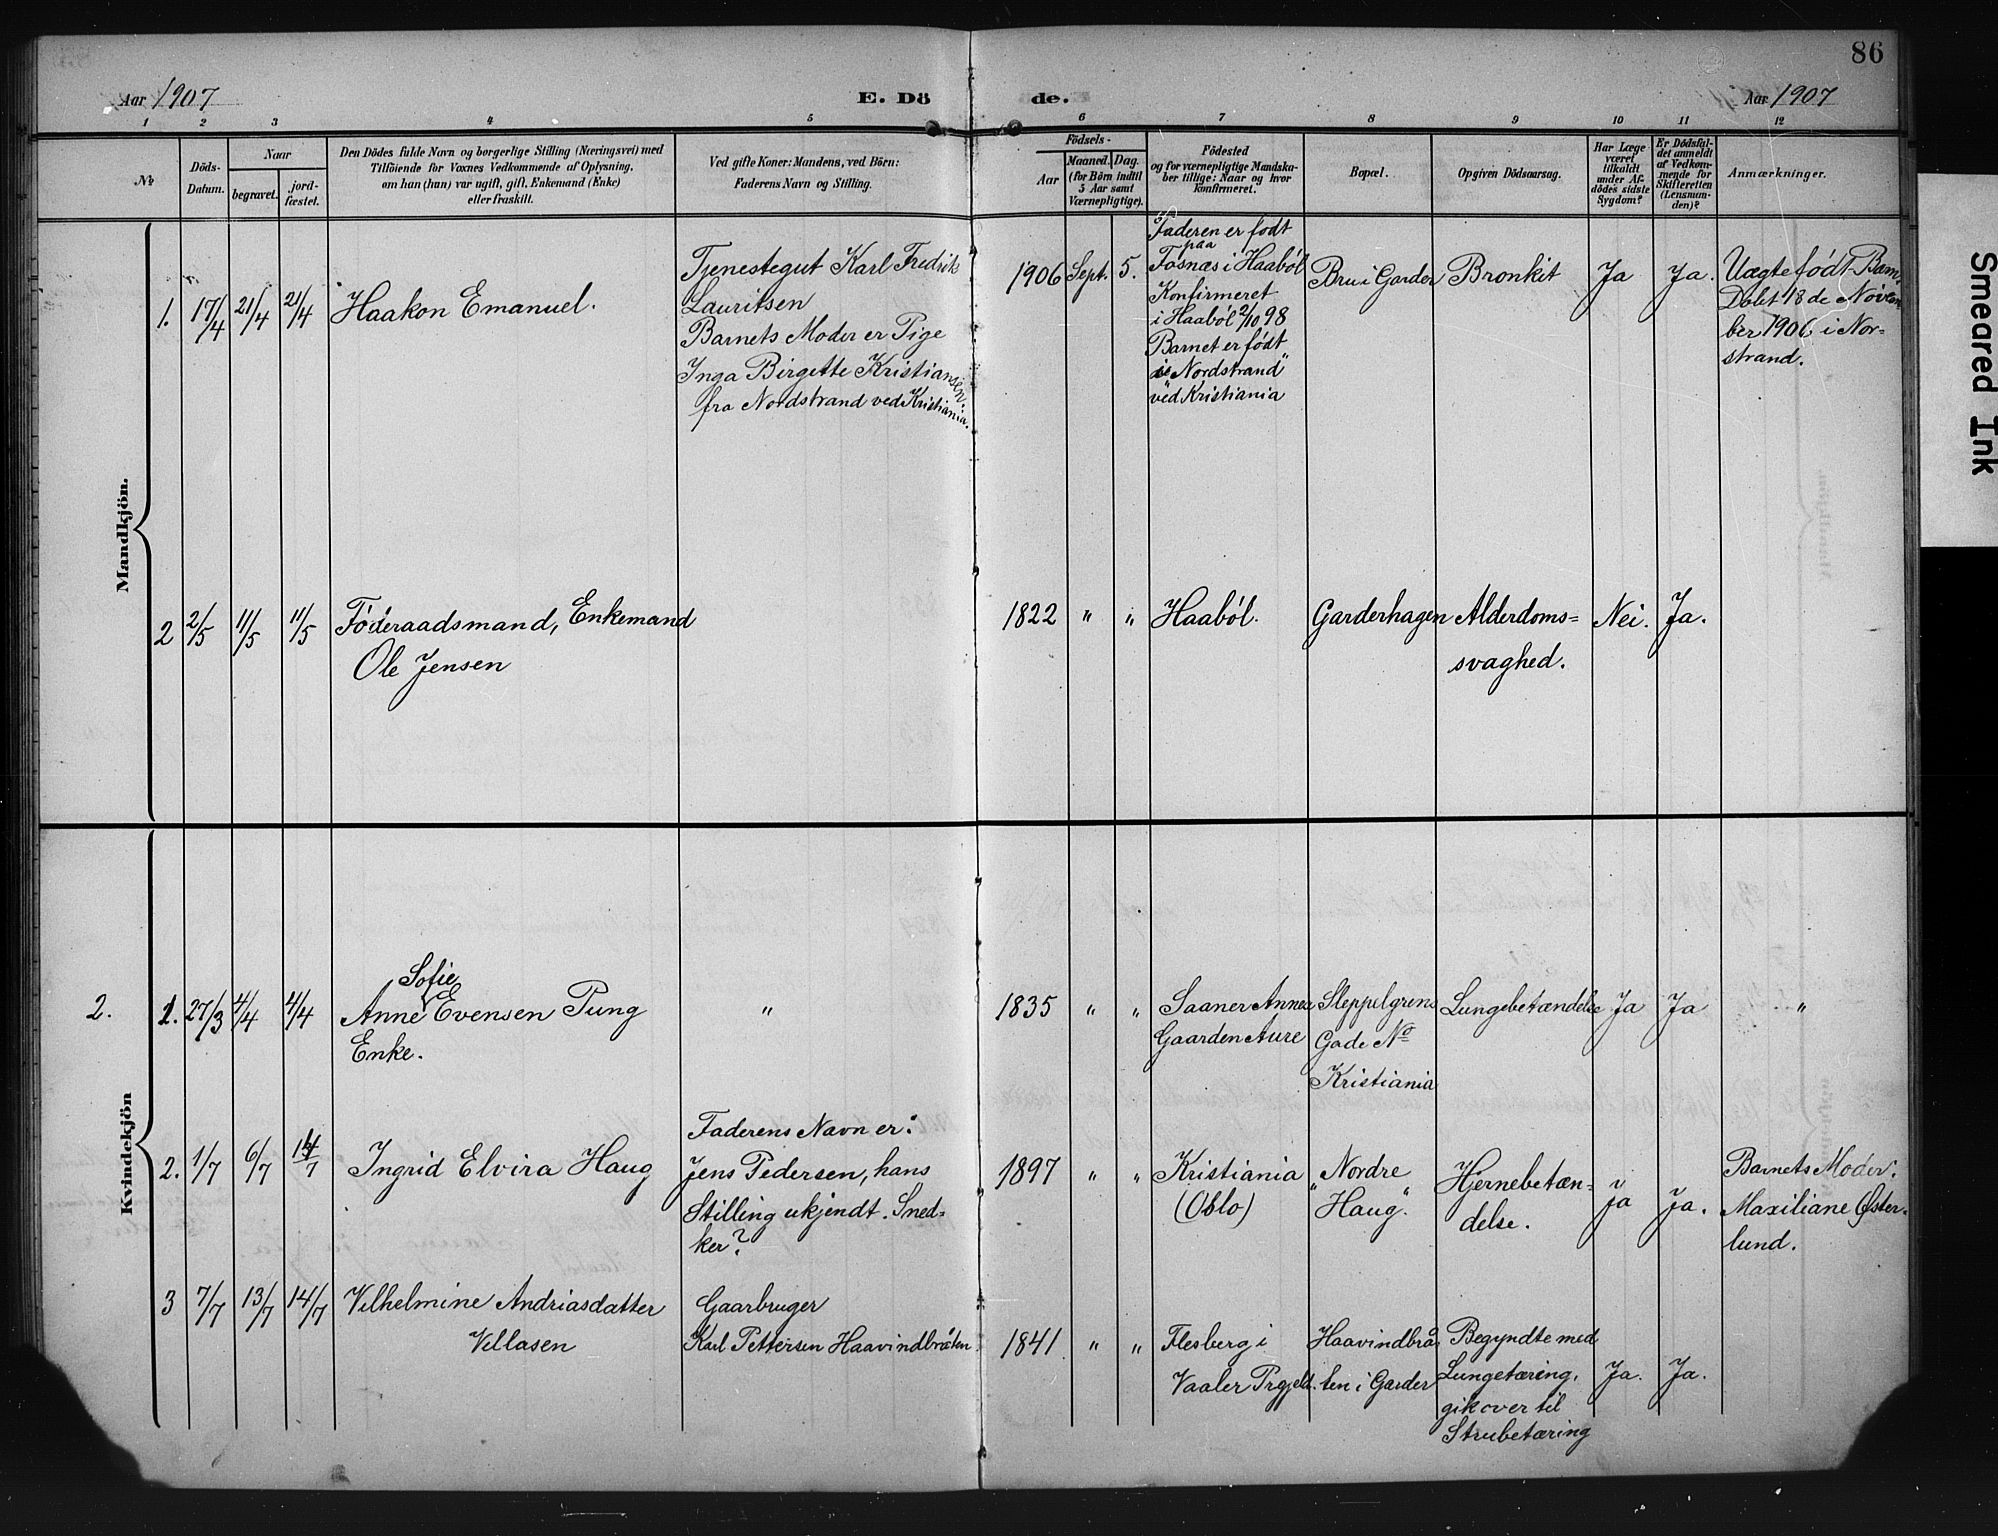 86
Aar 1907
E. Dö de.
Aar 1907
1 2 3 4 5 6 7 8 9 10 11 12
№
Döds-
Datum.
Naar
begravet.
jord-
fæstet.
Den Dödes fulde Navn og borgerlige Stilling (Næringsvei) med
Tilföiende for Voxnes Vedkommende af Oplysning,
om han (hun) var ugift, gift, Enkemand (Enke)
eller fraskilt.
Ved gifte Koner: Mandens, ved Börn:
Faderens Navn og Stilling.
Födsels-
Aar
Maaned. Dag.
(for Börn indtil
5 Aar samt
Værnepligtige).
Födested
og for værnepligtige Mandska-
ber tillige: Naar og hvor
konfirmeret.
Bopæl.
Opgiven Dödsaarsag.
Har Læge
været
tilkaldt
under Af-
dödes sidste
Sygdom?
Er Dödsfal-
det anmeldt
af Vedkom-
mende for
Skifteretten
(Lensman-
den)?
Anmærkninger.
Mandkjön.
1. 17/4 21/4 21/4 Haakon Emanuel.
Tjenestegut Karl Fredrik
Lauritsen
Barnets Moder er Pige
Inga Birgette Kristiansen.
fra Nordstrand ved Kristiania.
1906 Sept. 5.
Faderen er født
paa
Fosnæs i Haabøl
Konfirmeret
i Haabøl 2/10 98
Barnet er født
i "Nordstrand"
ved Kristiania
Bru i Garder Bronkit Ja Ja.
Uægte født Barn,
Døbt 18de Novem-
ber 1906 i Nor-
strand.
2 2/5 11/5 11/5 Føderaadsmand, Enkemand
Ole Jensen
1822 " " Haabøl. Garderhagen Alderdoms=
svaghed.
Nei. Ja.
Kvindekjön
2. 1. 27/3 4/4 4/4
Sofie
Anne Evensen Pung
Enke.
"
1835 " " Saaner Annex
Gaarden Aure
Steppelgrens
Gade No
Kristiania
Lungebetændelse Ja Ja "
2. 1/7 6/7 14/7 Ingrid Elvira Haug
Faderens Navn er:
Jens Pedersen, hans
Stilling ukjendt. Sned-
ker?
1897 " " Kristiania
(Oslo)
Nordre
"Haug".
Hjernebetæn=
delse.
Ja Ja.
Barnets Moder:
Maxiliane Øster-
lund.
3 7/7 13/7 14/7 Vilhelmine Andriasdatter
Villasen
Gaarbruger
Karl Pettersen Haavindbråten
1841 " " Flesberg i
Vaaler Prgjeld.
Haavindbrå-
ten i Garder
Begyndte med
Lungetæring,
gik over til
Strubetæring
Ja. Ja.
Smeared Ink